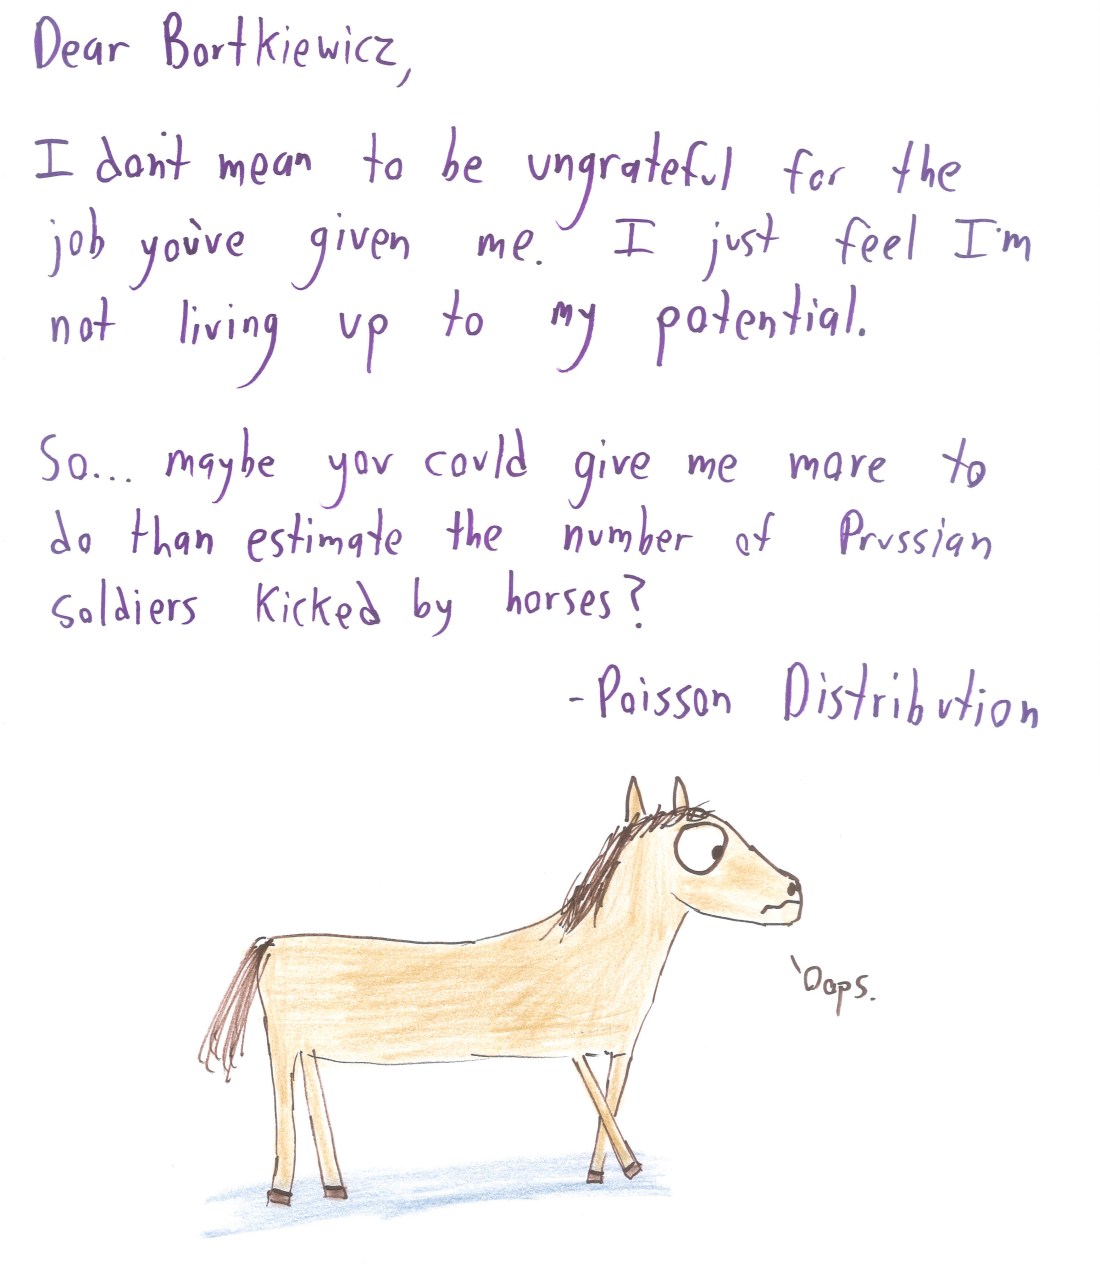 Dear Bortkiewicz,
I don't mean to be ungrateful for the
job you've given me. I just feel I'm
not living up to my potential.
So... maybe you could give me more to
do than estimate the number of Prussian
soldiers kicked by horses?
-Poisson Distribution
Oops.